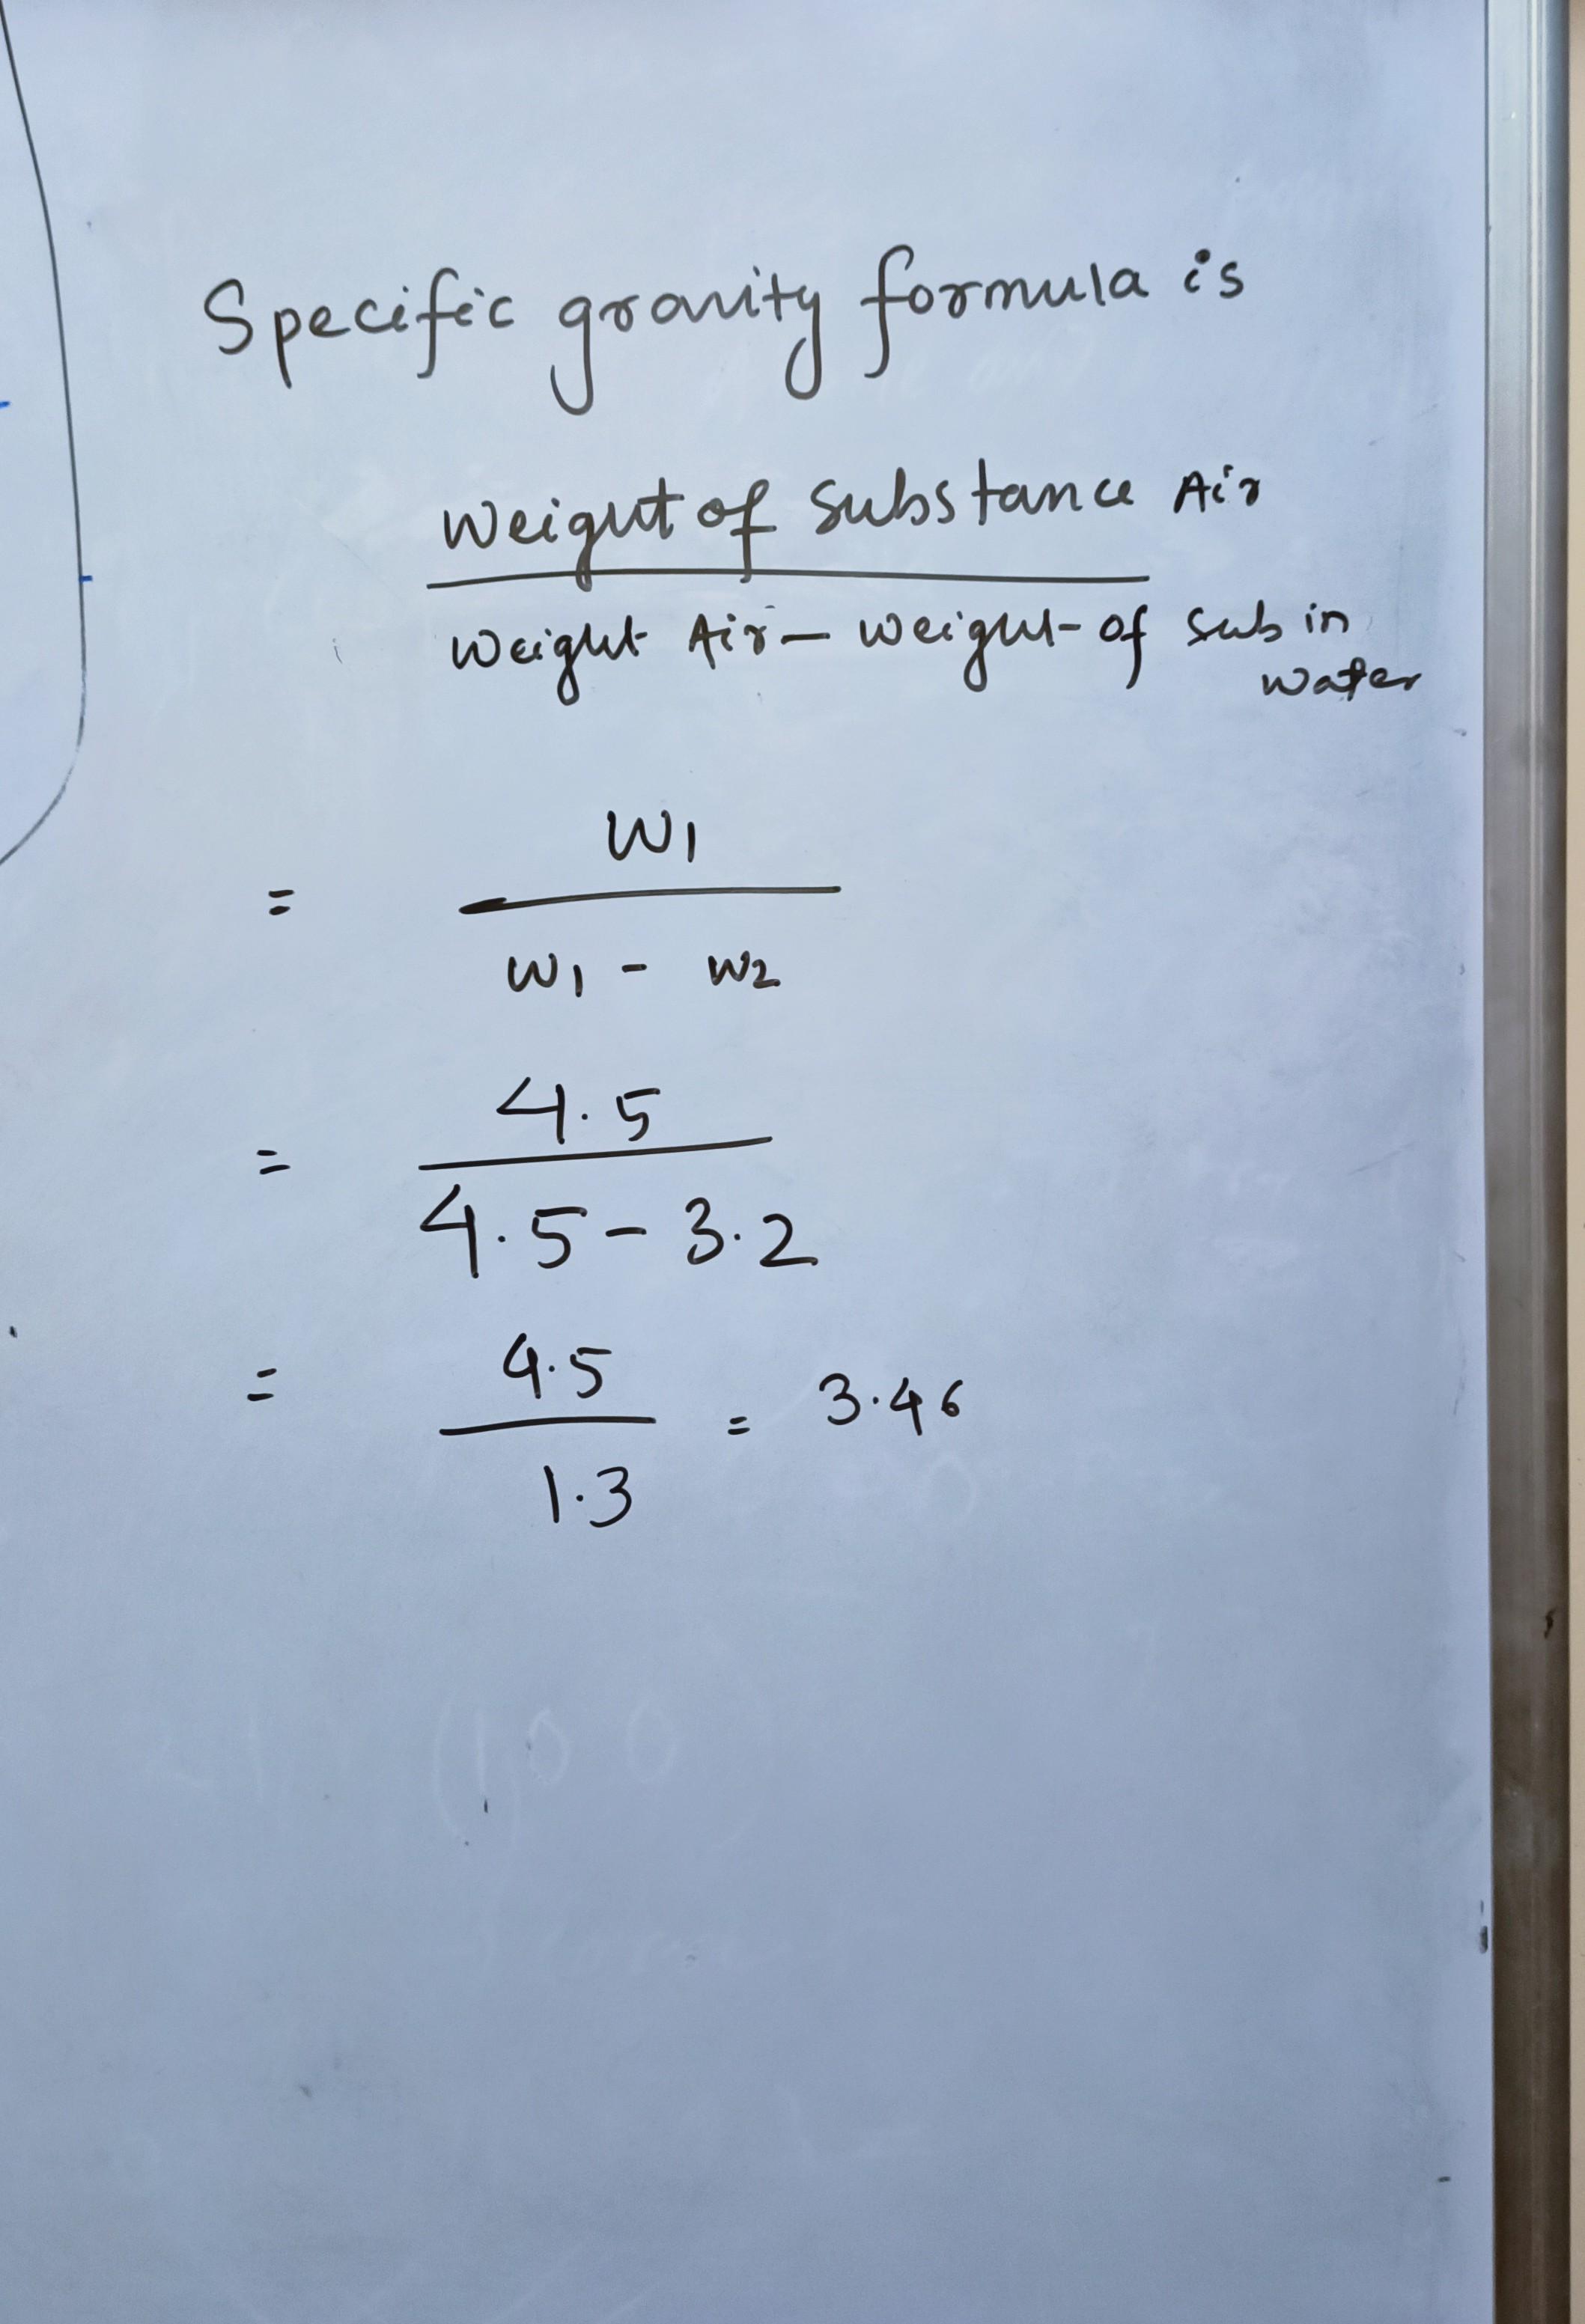 Specific gravity formula is
Weight of substance Air
Weight Air - weight of sub in
water
= W1
W1 - W2
= 4.5
4.5 - 3.2
= 4.5
1.3
= 3.46